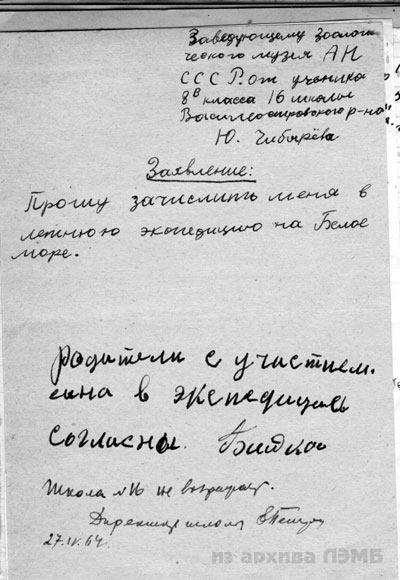 Заведующему Зоологи-
ческого музея АН
СССР от ученика
8в класса 16 школы
Василеостровского р-на
Ю. Чибярёва
Заявление:
Прошу зачислить меня в
летнюю экспедицию на Белое
море.
родители с участием
сына в экспедиции
согласны.
Школа №16 не возражает.
Директор школы
27.IV.64.
из архива ЛЭМБ